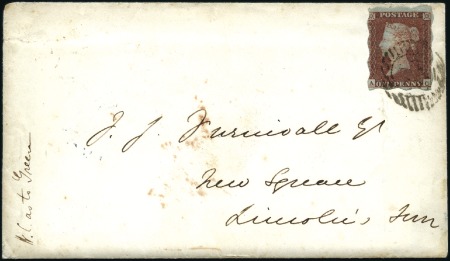 POSTAGE
ONE PENNY
F. J. Furnivall Esq
New Square
Lincoln's Inn